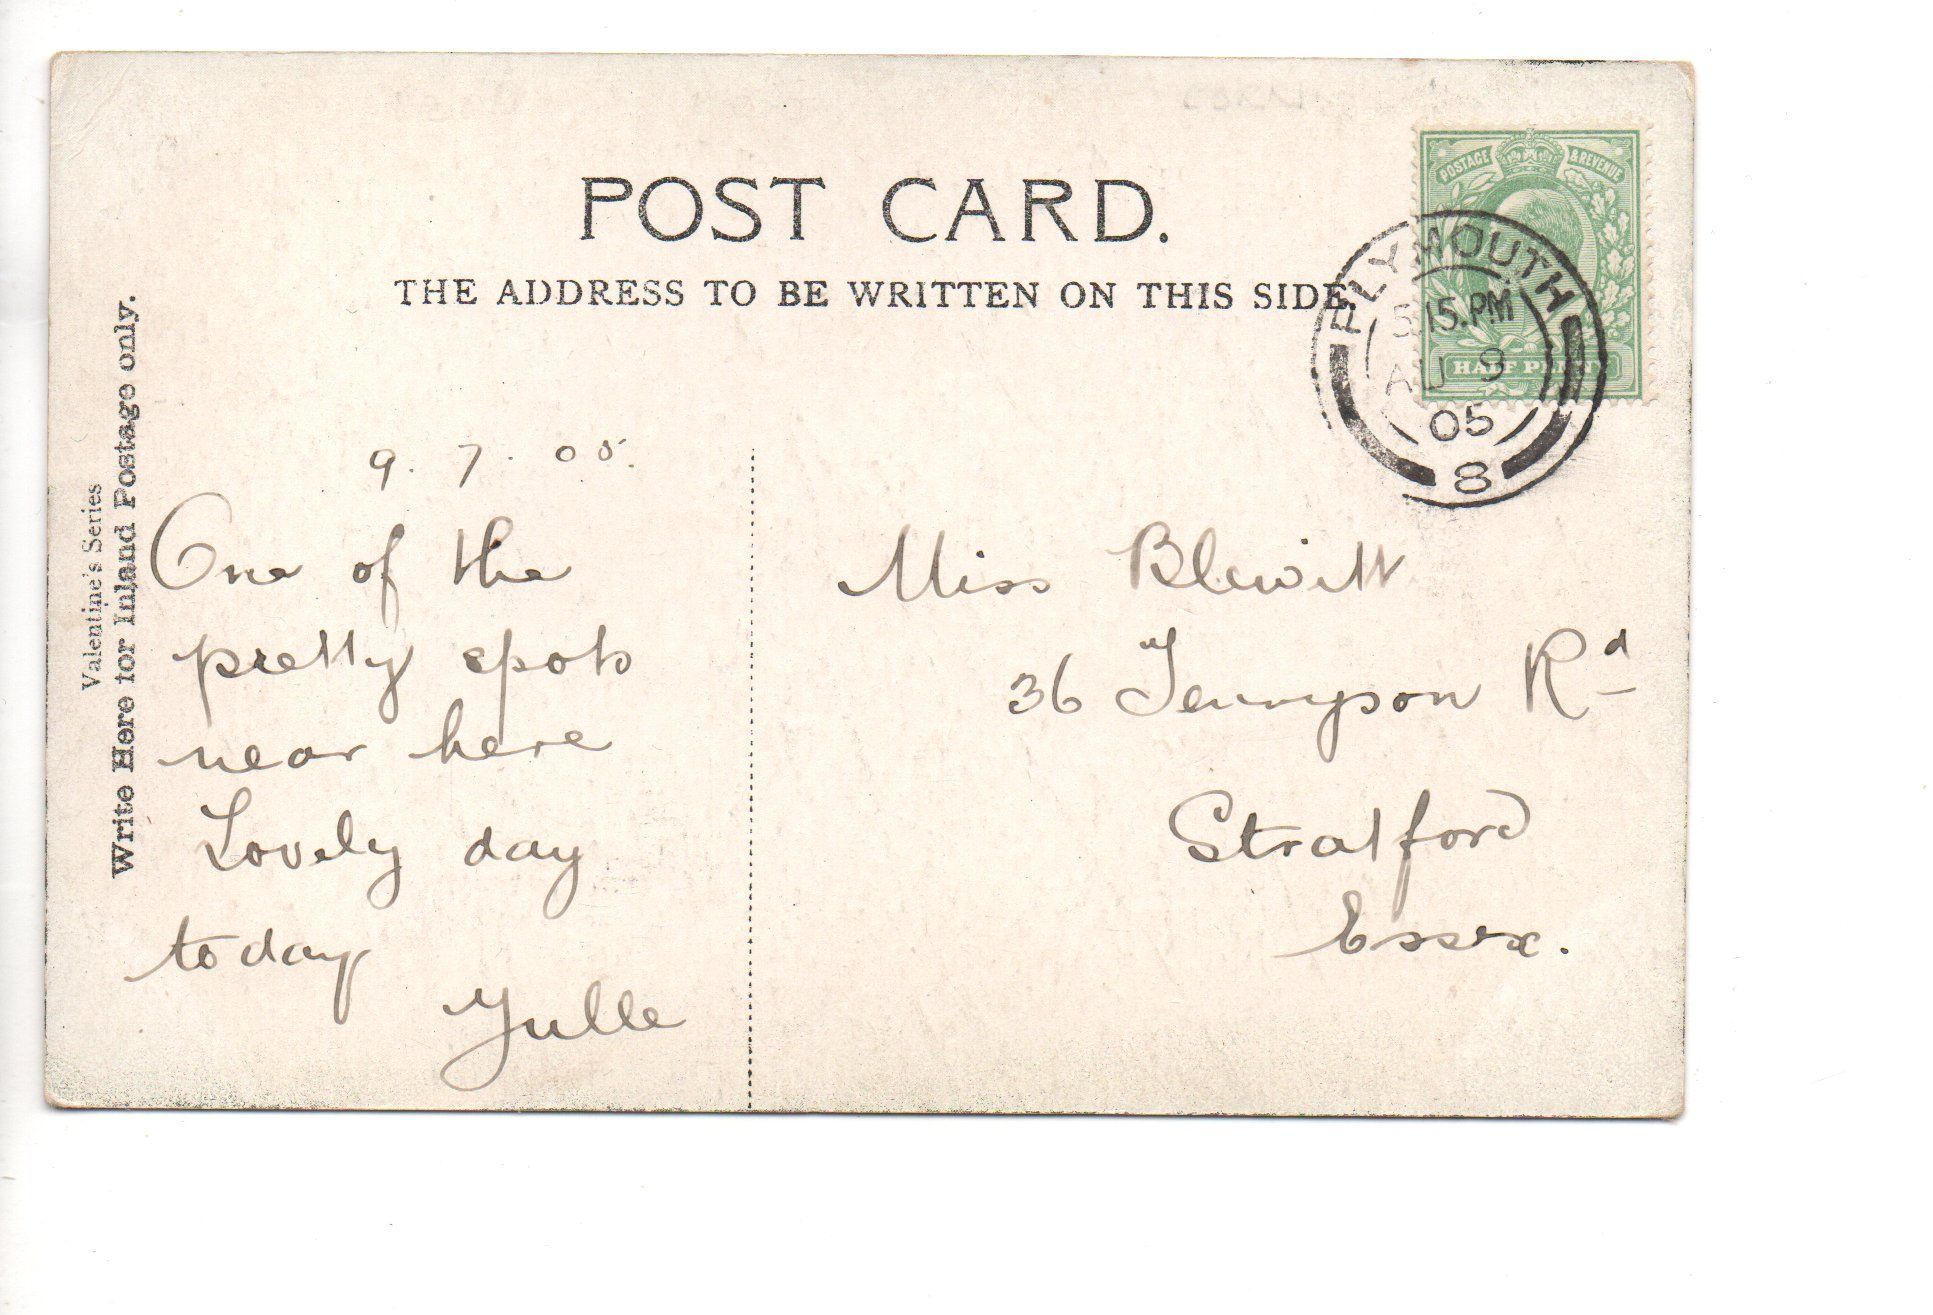 POST CARD.
THE ADDRESS TO BE WRITTEN ON THIS SIDE.
Valentine's Series
Write Here for Inland Postage only.
POSTAGE & REVENUE
HALF PENNY
PLYMOUTH
5.15.PM
AU 9
05
8
9.7.05.
One of the
pretty spots
near here
Lovely day
today
Yulle
Miss Blewitt
36 Tennyson Rd
Stratford
Essex.